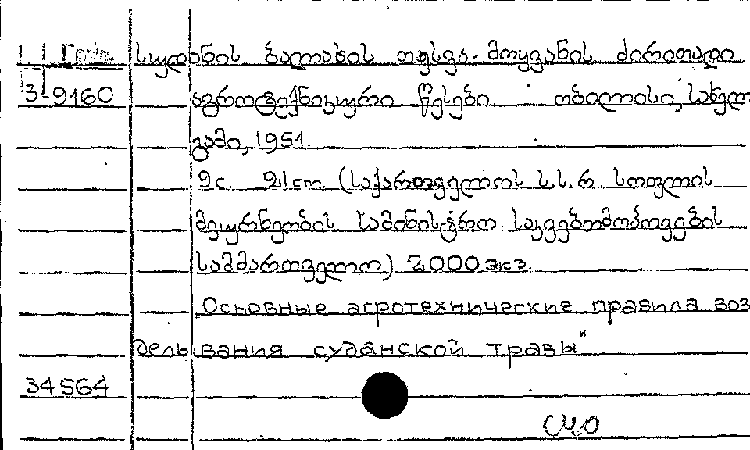 სუდანის ბალახის თესვა-მოყვანის ძირითადი
3-9160 აგროტექნიკური წესები თბილისი, სახელ
გამი, 1951
9c. 21cm (საქართველოს ს.ს.რ. სოფლის
მეურნეობის სამინისტრო საკვებომოპოვების
სამმართველო) 2000 экз.
"Основные агротехнические правила воз
делывания суданской травы"
34564